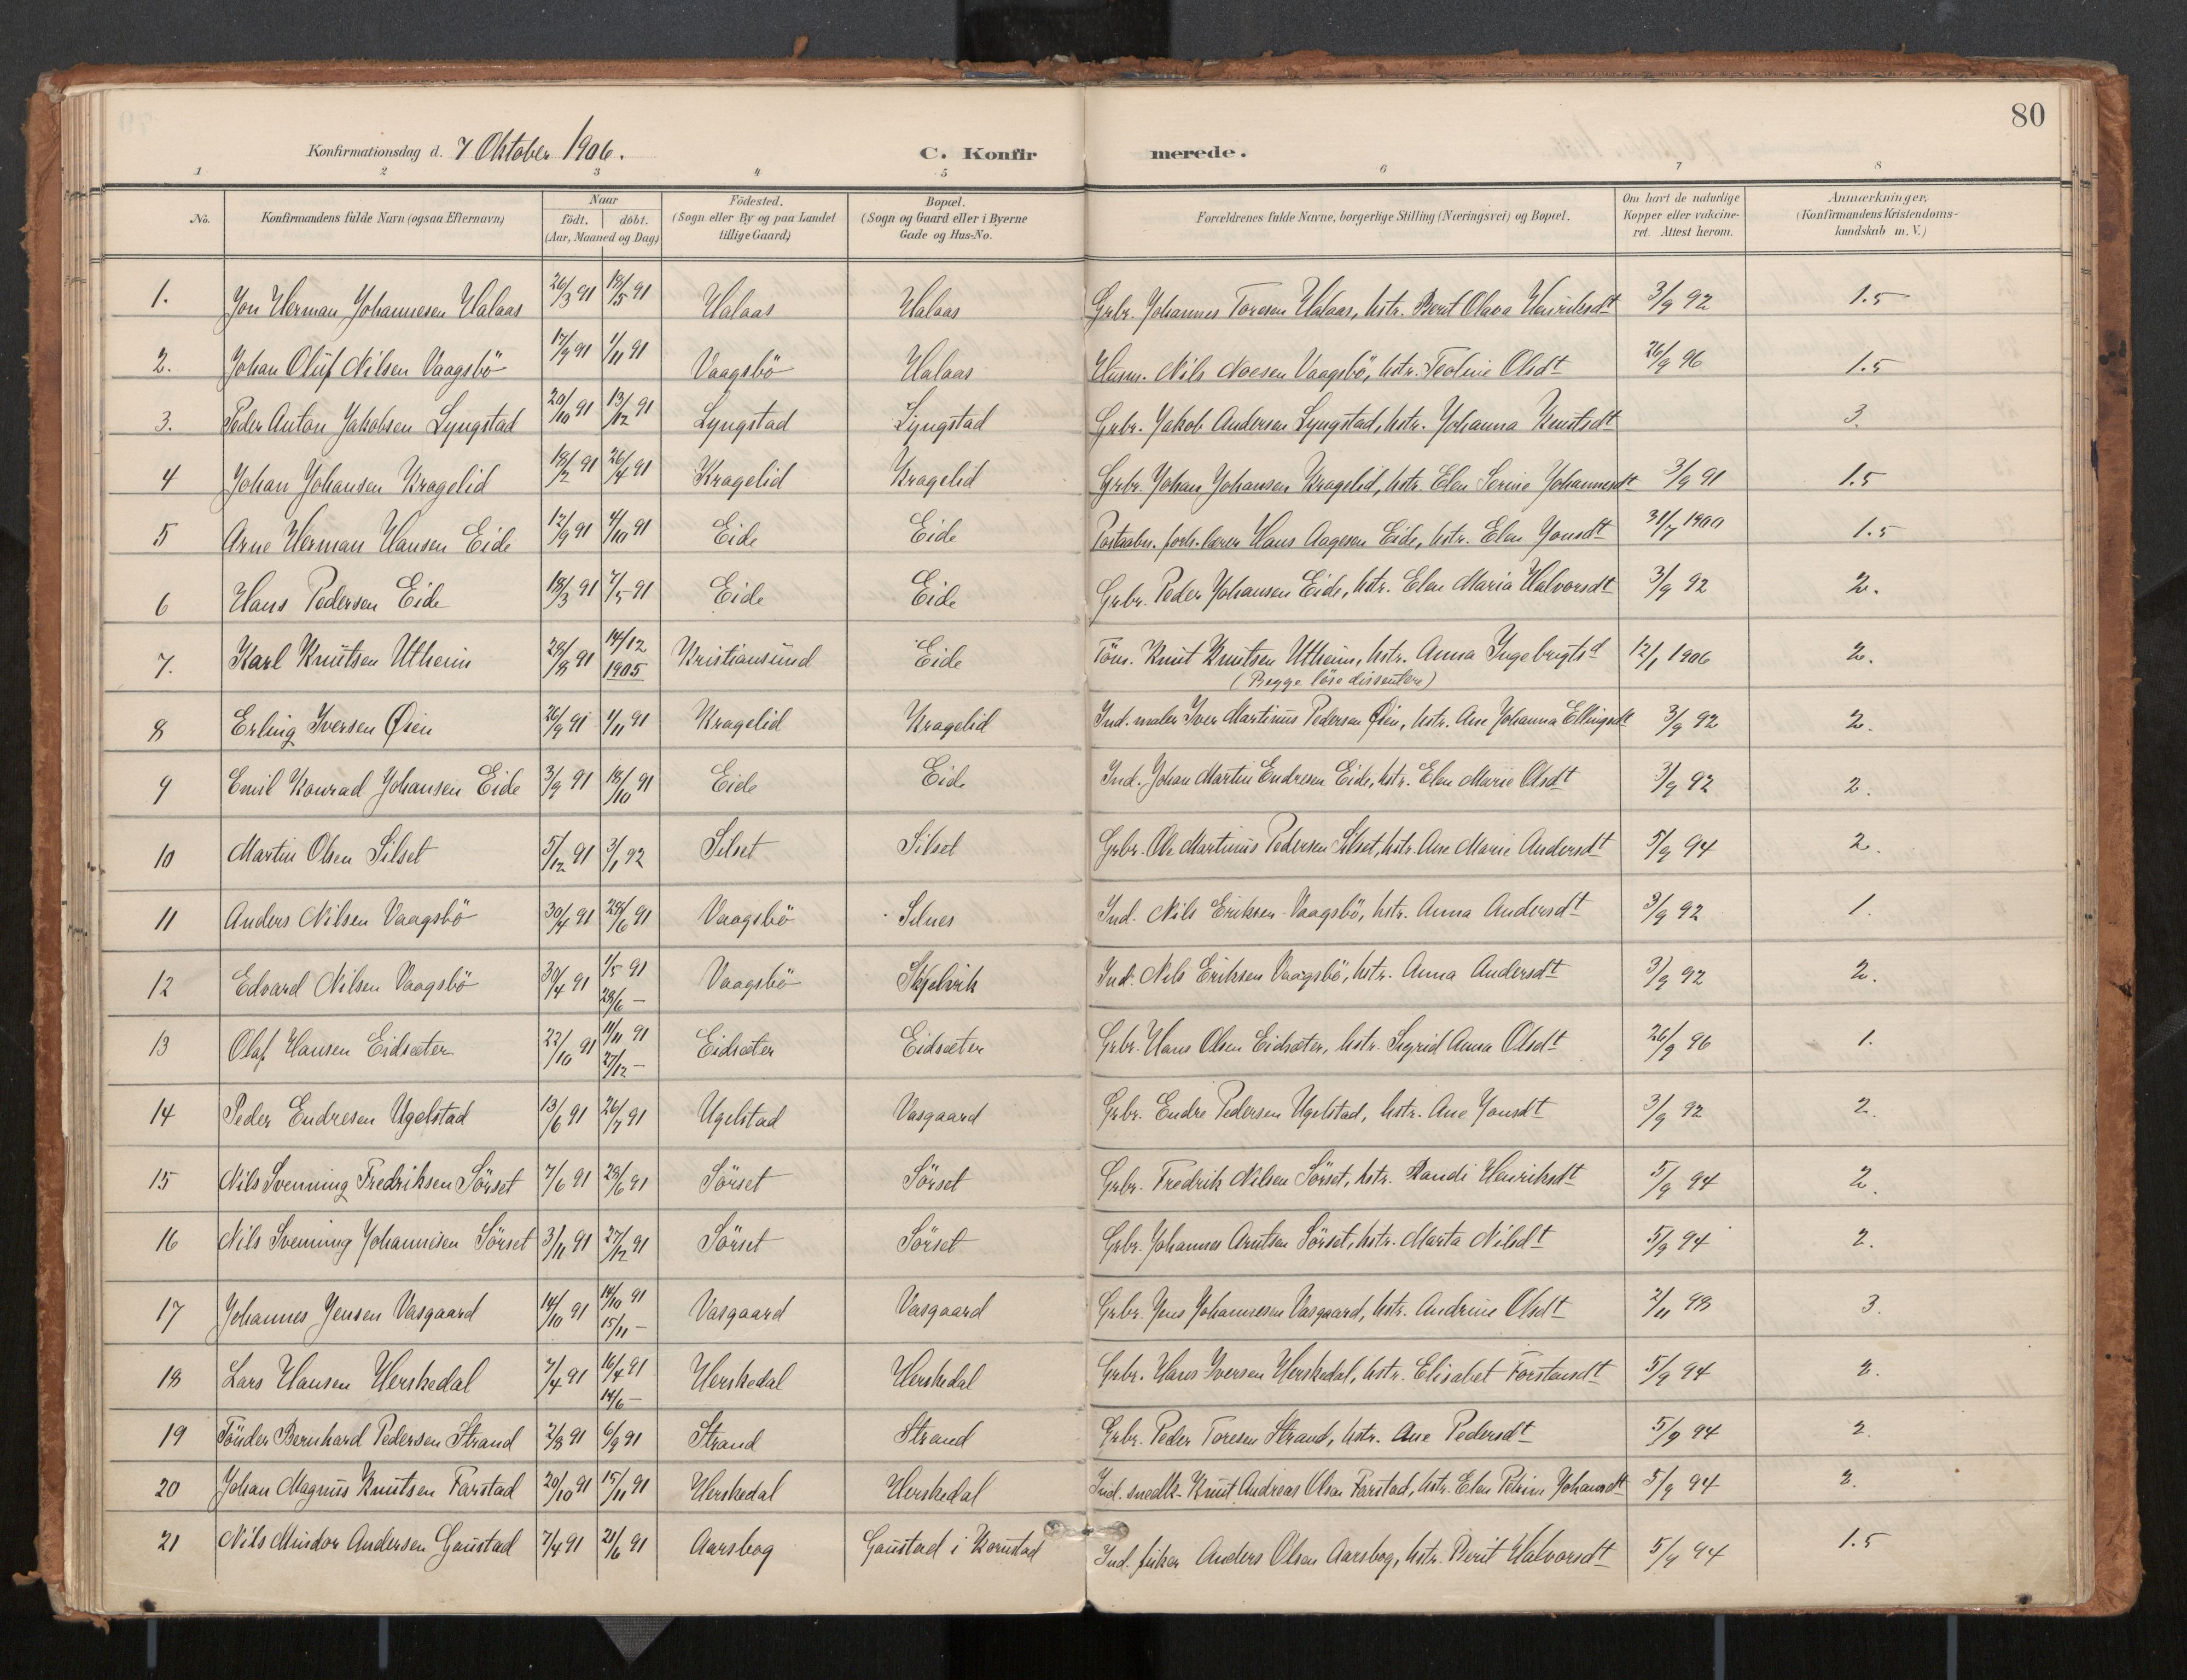 80
Konfirmationsdag d. 7 Oktober 1906. C. Konfirmerede.
1 2 3 4 5 6 7 8
No. Konfirmandens fulde Navn (ogsaa Efternavn) Naar födt. döbt. (Aar, Maaned og Dag.) Födested. (Sogn eller By og paa Landet tillige Gaard.) Bopæl. (Sogn og Gaard eller i Byerne Gade og Hus-No. Forældrenes fulde Navne, borgerlige Stilling (Næringsvei) og Bopæl. Om havt de naturlige Kopper eller vakcineret. Attest herom. Anmærkninger. (Konfirmandens Kristendomskundskab m. V.)
1. Jon Herman Johannesen Halaas 26/3 91 18/5 91 Halaas Halaas Grbr. Johannes Toresen Halaas, hstr. Berit Olava Henriksdt 3/9 92 1.5
2. Johan Oluf Nilsen Vaagsbö 17/9 91 1/11 91 Vaagsbö Halaas Husm. Nils Noesen Vaagsbö, hstr. Teoline Olsdt 26/9 96 1.5
3. Peder Anton Jakobsen Lyngstad 20/10 91 13/12 91 Lyngstad Lyngstad Grbr. Jakob Andersen Lyngstad, hstr. Johanna Knutsdt 3.
4 Johan Johansen Kragelid 18/2 91 26/4 91 Kragelid Kragelid Grbr. Johan Johansen Kragelid, hstr. Elen Serine Johannesdt 3/9 91 1.5
5 Arne Herman Hansen Eide 12/9 91 4/10 91 Eide Eide Postaabn. Hans Aagesen Eide, hstr. Elen Jonsdt 31/7 1900 1.5
6 Hans Pedersen Eide 18/3 91 7/5 91 Eide Eide Grbr. Peder Johansen Eide, hstr. Elen Maria Halvorsdt 3/9 92 2.
7. Karl Knutsen Utheim 29/8 91 14/12 1905 Kristiansund Eide Töm. Knut Knutsen Utheim, hstr. Anna Ingebrigtsd 12/1 1906 2.
(Begge löse dissentere)
8 Erling Iversen Øien 26/9 91 1/11 91 Kragelid Kragelid Ind. maler Iver Martinus Pedersen Øien, hstr. Ane Johanna Ellingsdt 3/9 92 2.
9 Emil Konrad Johansen Eide 3/9 91 18/10 91 Eide Eide Ind. Johan Martin Endresen Eide, hstr. Elen Marie Olsdt 3/9 92 2.
10 Martin Olsen Silset 5/12 91 3/1 92 Silset Silset Grbr. Ole Martinus Pedersen Silset, hstr. Ane Marie Andersdt 5/9 94 2.
11 Anders Nilsen Vaagsbö 30/4 91 28/6 91 Vaagsbö Silnes Ind. Nils Eriksen Vaagsbö, hstr. Anna Andersdt 3/9 92 1.
12 Edvard Nilsen Vaagsbö 30/4 91 1/5 91 28/6 — Vaagsbö Skjelvik Ind. Nils Eriksen Vaagsbö, hstr. Anna Andersdt 3/9 92 2.
13 Olaf Hansen Eidsæter 22/10 91 11/11 91 27/12 — Eidsæter Eidsæter Grbr. Hans Olsen Eidsæter, hstr. Sigrid Anna Olsdt 26/9 96 1.
14 Peder Endresen Ugelstad 13/6 91 26/7 91 Ugelstad Vasgaard Grbr. Endre Pedersen Ugelstad, hstr. Ane Jonsdt 3/9 92 2.
15 Nils Svenning Fredriksen Sörset 7/6 91 28/6 91 Sörset Sörset Grbr. Fredrik Nilsen Sörset, hstr. Randi Henriksdt 5/9 94 2.
16 Nils Svenning Johannesen Sörset 3/11 91 27/12 91 Sörset Sörset Grbr. Johannes Arntsen Sörset, hstr. Marta Nilsdt 5/9 94 2.
17 Johannes Jensen Vasgaard 14/10 91 14/10 91 15/11 — Vasgaard Vasgaard Grbr. Jens Johannesen Vasgaard, hstr. Andrine Olsdt 2/11 98 3.
18 Lars Hansen Herskedal 7/4 91 16/4 91 14/6 — Herskedal Herskedal Grbr. Hans Iversen Herskedal, hstr. Elisabet Torstensdt 5/9 94 2.
19 Tönder Bernhard Pedersen Strand 2/8 91 6/9 91 Strand Strand Grbr. Peder Toresen Strand, hstr. Ane Pedersdt 5/9 94 2.
20 Johan Magnus Knutsen Farstad 20/10 91 15/11 91 Herskedal Herskedal Ind. snedk. Knut Andreas Olsen Farstad, hstr. Elen Petrine Johansdt 5/9 94 2.
21 Nils Mindor Andersen Gaustad 7/4 91 21/6 91 Aarsbog Gaustad i Kornstad Ind. fisker Anders Olsen Aarsbog, hstr. Berit Halvorsdt 5/9 94 1.5